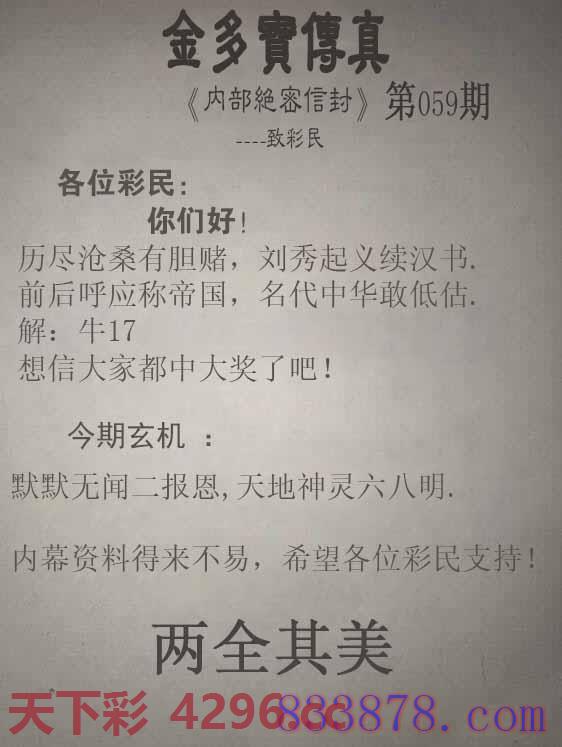 金多寶傳真
《内部絶密信封》第059期
----致彩民
各位彩民:
你们好!
历尽沧桑有胆赌，刘秀起义续汉书.
前后呼应称帝国，名代中华敢低估.
解：牛17
想信大家都中大奖了吧！
今期玄机 ：
默默无闻二报恩,天地神灵六八明.
内幕资料得来不易，希望各位彩民支持！
两全其美
天下彩 4296.cc
883878.com